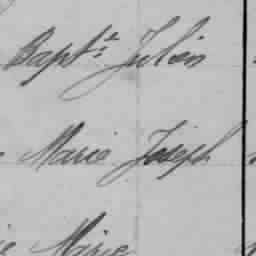 Bapt.e Julien
Marie Joseph
Marie